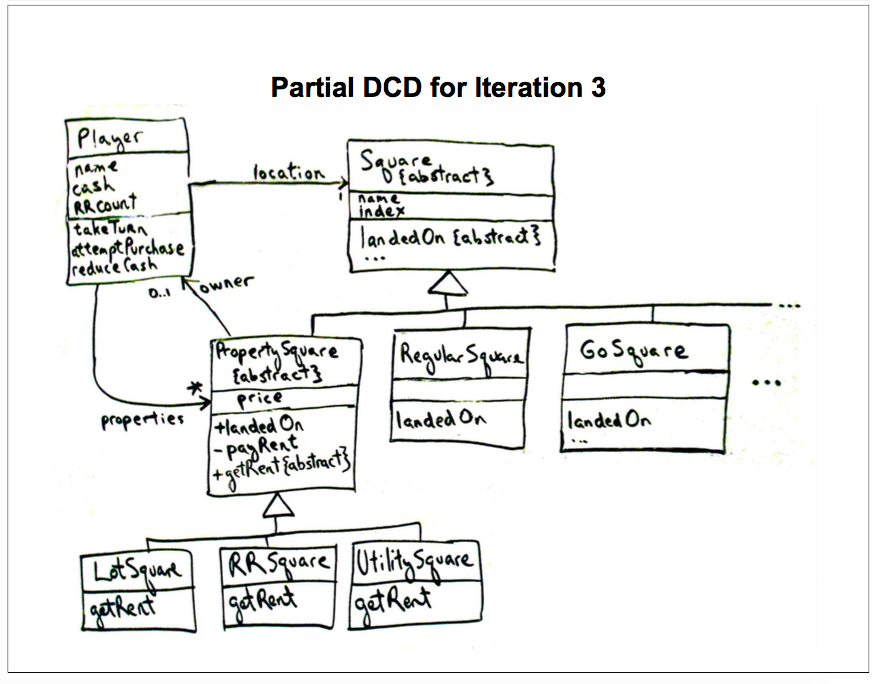 Partial DCD for Iteration 3
Player
name
cash
RRcount
takeTurn
attemptPurchase
reduceCash
location
1
Square
{abstract}
name
index
landedOn {abstract}
...
0..1
owner
*
properties
...
PropertySquare
{abstract}
price
+landedOn
-payRent
+getRent{abstract}
RegularSquare
landedOn
GoSquare
landedOn
...
...
LotSquare
getRent
RRSquare
getRent
UtilitySquare
getRent